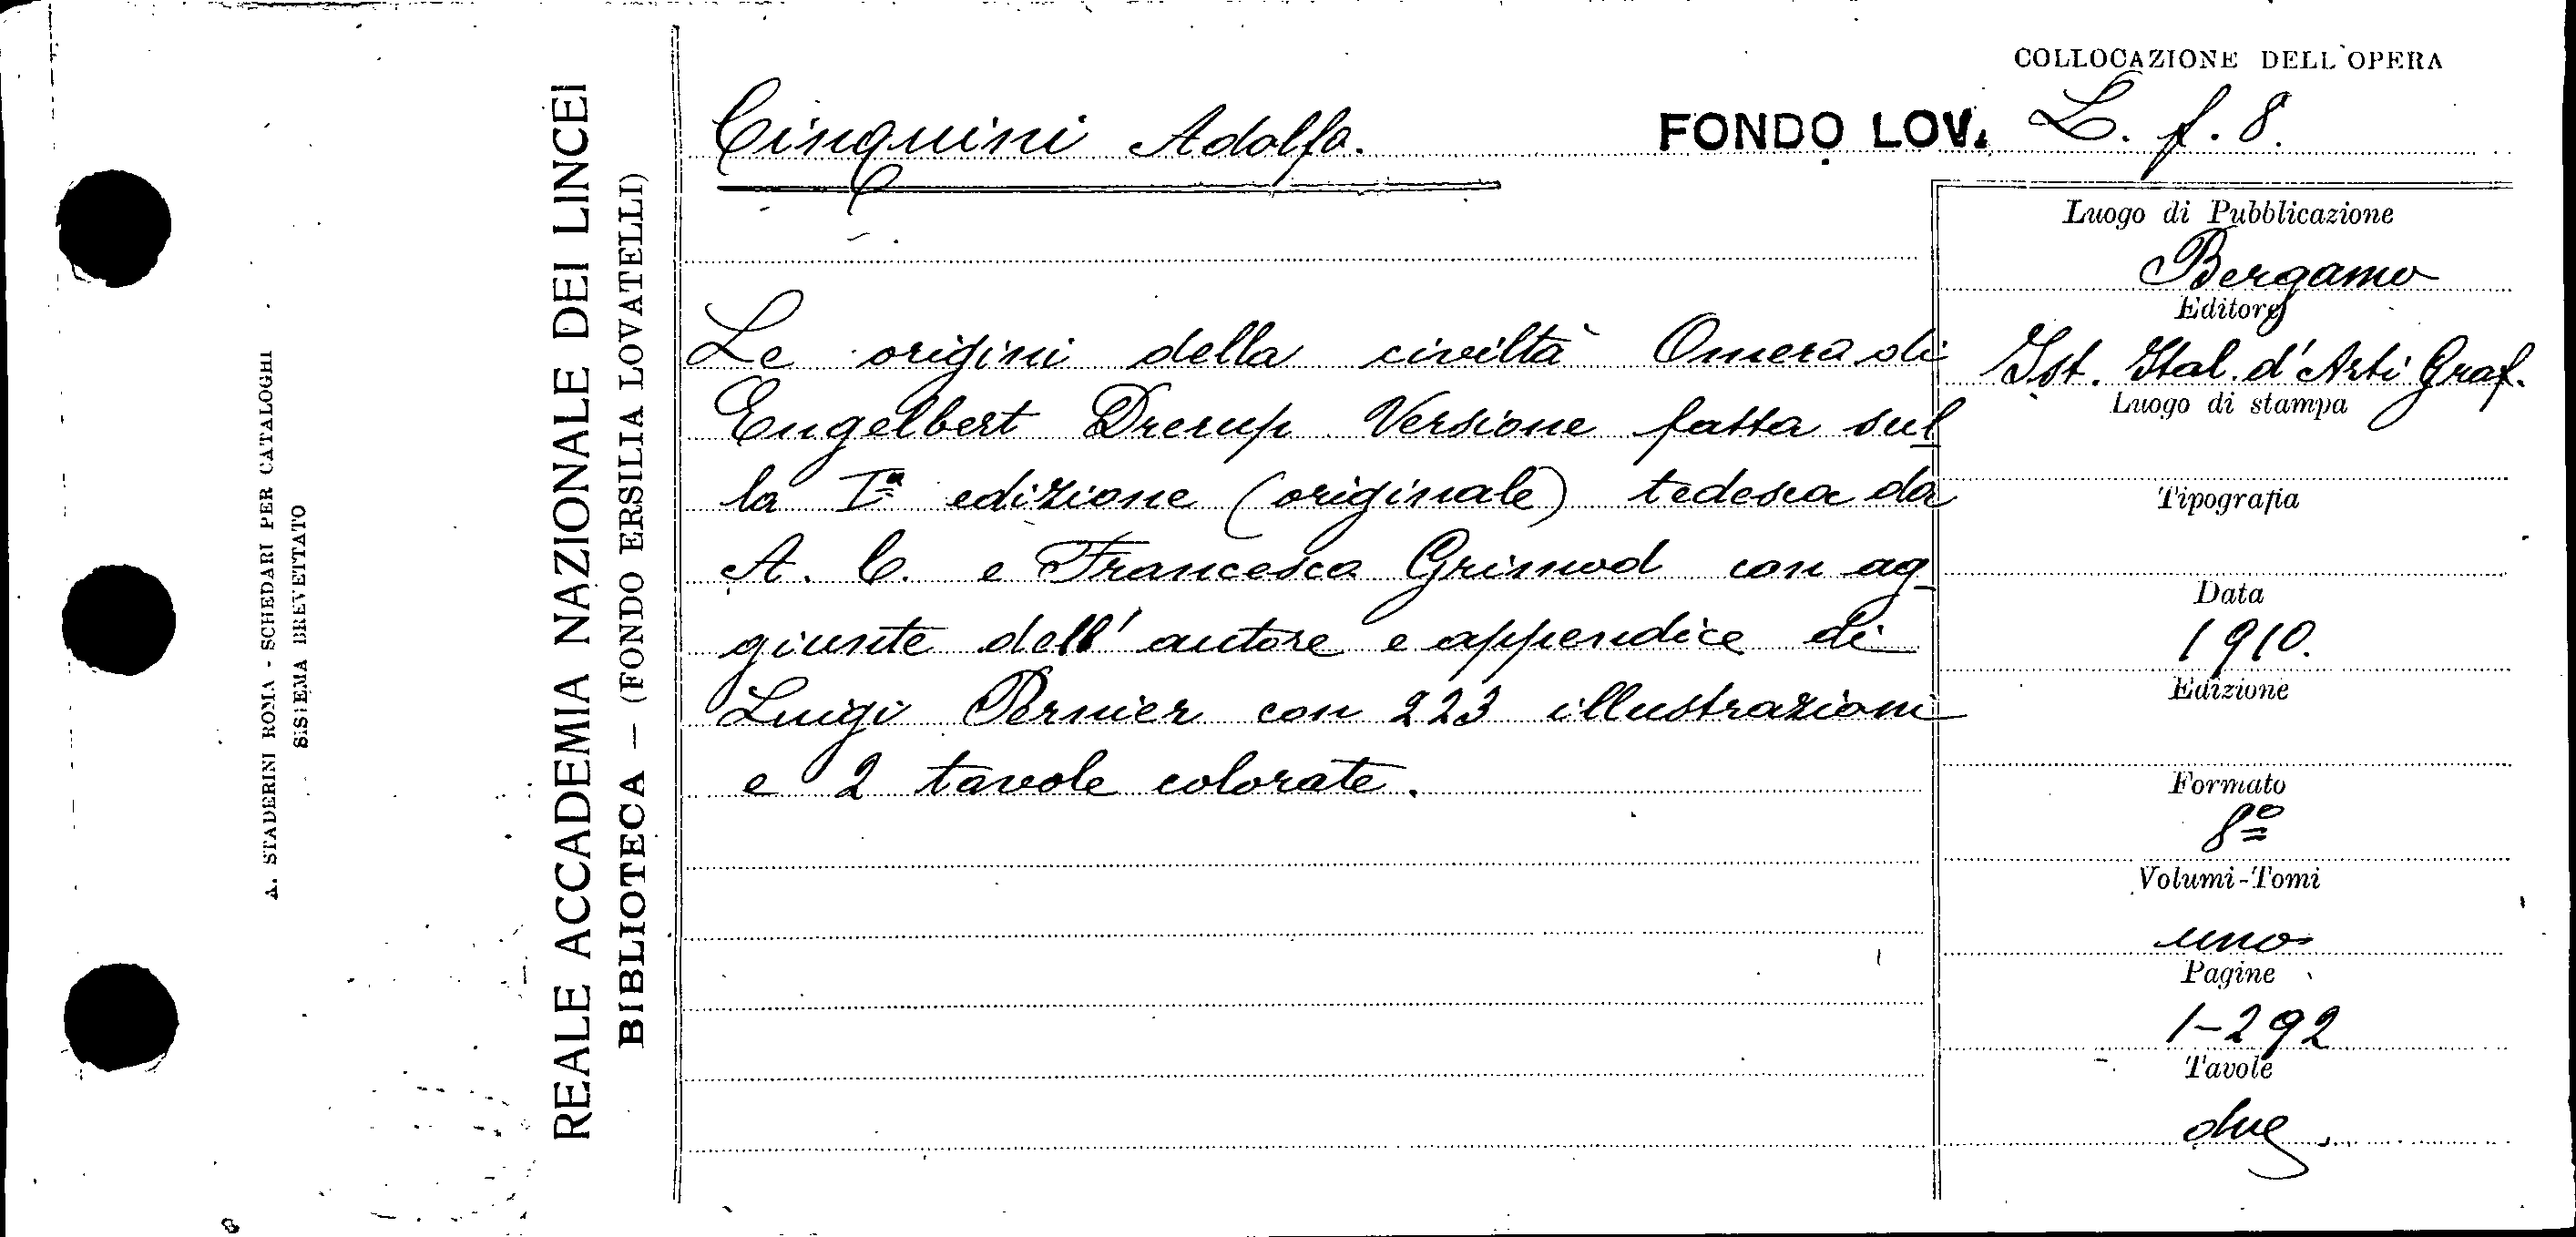 COLLOCAZIONE DELL'OPERA
Cinquini Adolfo.
FONDO LOV. L. f. 8.
Le origini della civiltà Omero di
Engelbert Drerup Versione fatta sul
la Iª edizione (originale) tedesca da
A. C. e Francesco Grimod con ag
giunte dell' autore e appendice di
Luigi Pernier con 223 illustrazioni
e 2 tavole colorate.
Luogo di Pubblicazione
Bergamo
Editore
Ist. Ital. d'Arti Graf.
Luogo di stampa
Tipografia
Data
1910.
Edizione
Formato
8º
Volumi-Tomi
uno
Pagine
1-292
Tavole
due.
REALE ACCADEMIA NAZIONALE DEI LINCEI
BIBLIOTECA — (FONDO ERSILIA LOVATELLI)
A. STADERINI ROMA - SCHEDARI PER CATALOGHI
SISTEMA BREVETTATO